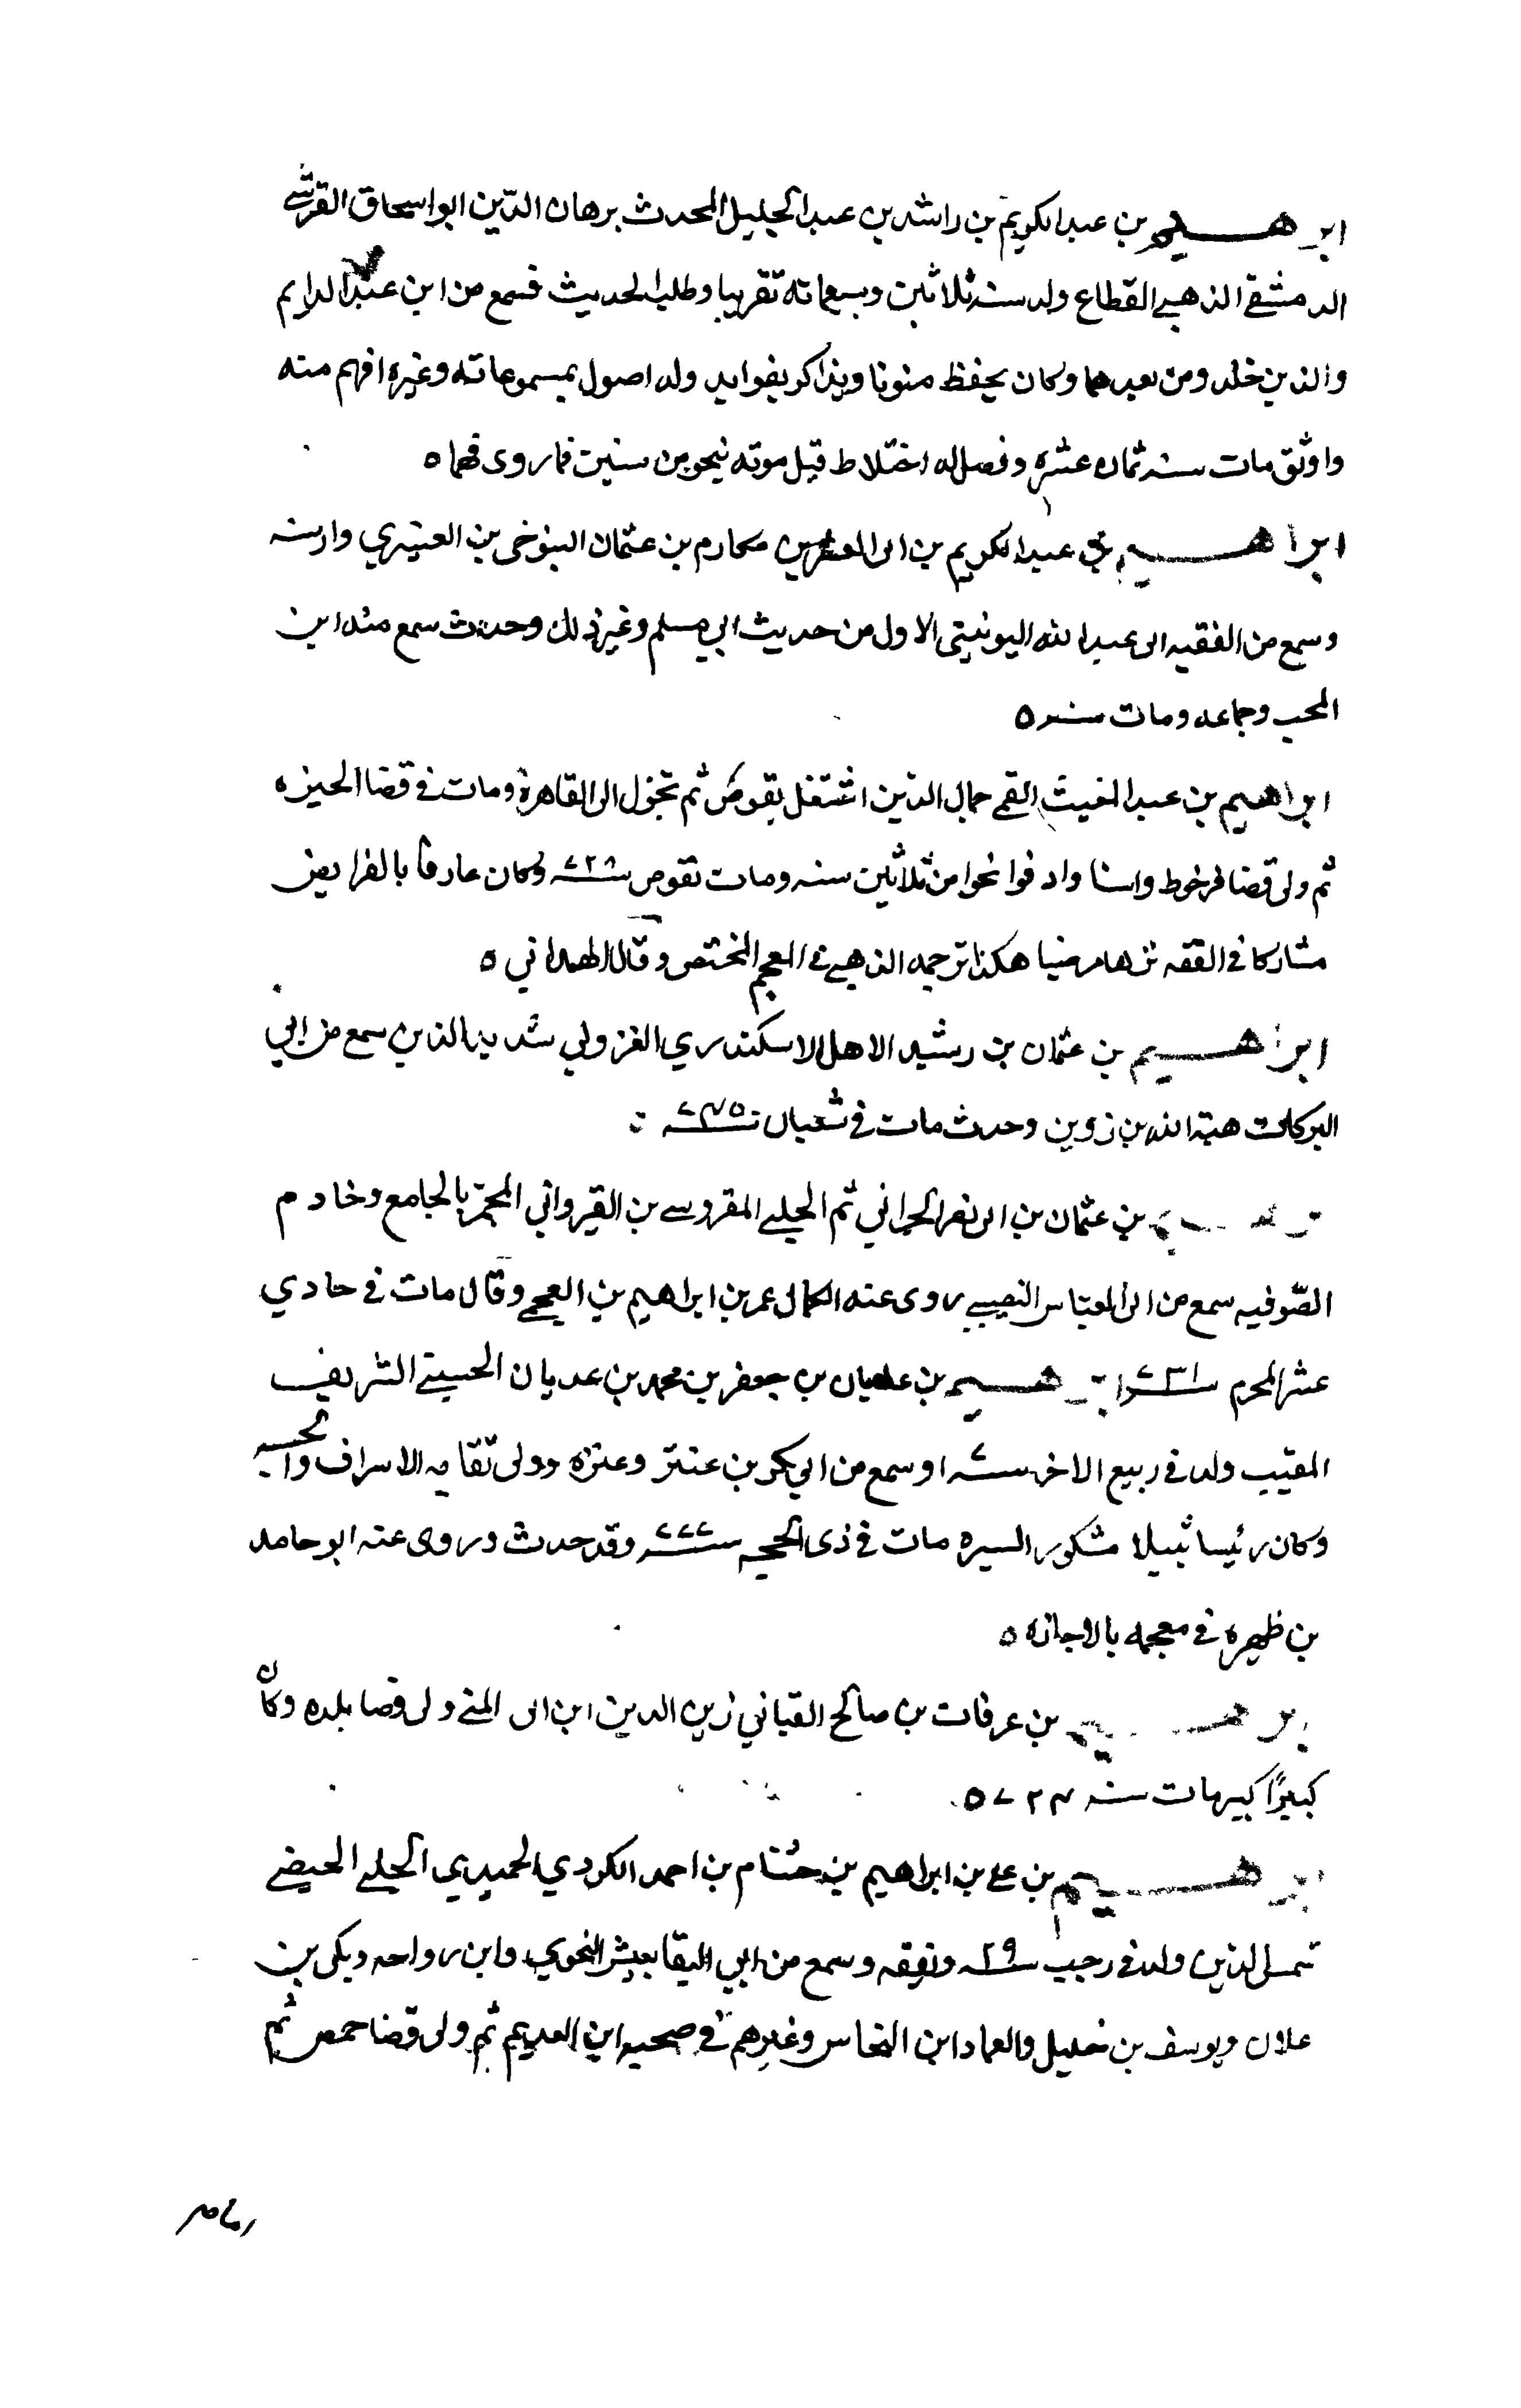 ابرهيم بن عبد الكريم بن راشد بن عبد الجليل المحدث برهان الدّين ابو اسحاق القرشي
الدمشقي الذهبي القطاع ولد سنه ثلاثين وسبعماته تقريبا وطلب الحديث فسمع من ابن عبد الدايم
والذين خلد ومن بعدهما وكان يحفظ متونا ويذاكر بفوايد وله اصول بمسموعاته وغيره افهم منه
واوثق مات سنه ثمان عشره وفصل له اختلاط قبل موته نيحو من سنين فما روى فيهما ٥
ابراهيم بن عبد الكريم بن ابى مكارم بن عثمان التنوخى بن العنبري وارسنه
وسمع من الفقيه ابى عبد الله اليونيني الاول من حديث ابي مسلم وغير ذلك وحدث سمع منه ابن
المحب وجماعه ومات سنه ٥
ابراهيم بن عبد المغيث القمي جمال الدين اشتغل بقوص ثم تحول الى القاهرة ومات في قضا الجيزه
ثم ولى قضا فرخوط واسنا وادفوا نحوا من ثلاثين سنه ومات بقوص سنه ٧٢١ وكان عارفا بالفرايض
مشاركا في الفقه نزها مرضيا هكذا ترجمه الذهبي في المعجم المختص وقال الهمداني ٥
ابراهيم بن عثمان بن رشيد الاهل الاسكندري الغزولي سديد الدين سمع من ابي
البركات هبة الله بن زوين وحدث مات في شعبان سنه ٧٣٥
بن عثمان بن ابى نصر الحراني ثم الحلبي المقروسي بن القيرواني المجمّر بالجامع وخادم
الصّوفيه سمع من ابى العباس النصيبي روى عنه الكمالى عمر بن ابراهيم بن العجمي وقال مات في حادي
عشر المحرم سنه ٧٣١ ابرهيم بن عدنان بن جعفر بن محمد بن عدنان الحسيني الشريف
النقيب ولد في ربيع الاخر سنه وسمع من ابي بكر بن عنتر وغيره وولى نقابه الاسراف والحسبه
وكان رئيسا نبيلا مشكور السيره مات في ذى الحجه سنه ٧٧٧ وقد حدث وروى عنه ابو حامد
بن ظهيره في معجمه بالاجازه ٥
ابرهيم بن عرفات بن صالح القناني زين الدين ابن ابى المنى ولى قضا بلده وكان
كبيرًا مات سنه ٧٢٣ ٥
ابرهيم بن علي بن ابراهيم بن حسام بن احمد الكردي الحميدي الحلبي الحيضي
شمس الدين ولد في رجب سنه ٢٩ وتفقه وسمع من ابي البقا يعيش النحوي وابن رواحه ومكي بن
علان ويوسف بن خليل والعماد ابن النحاس وغيرهم في صحبه ابن العديم ثم ولى قضا حمص ثم